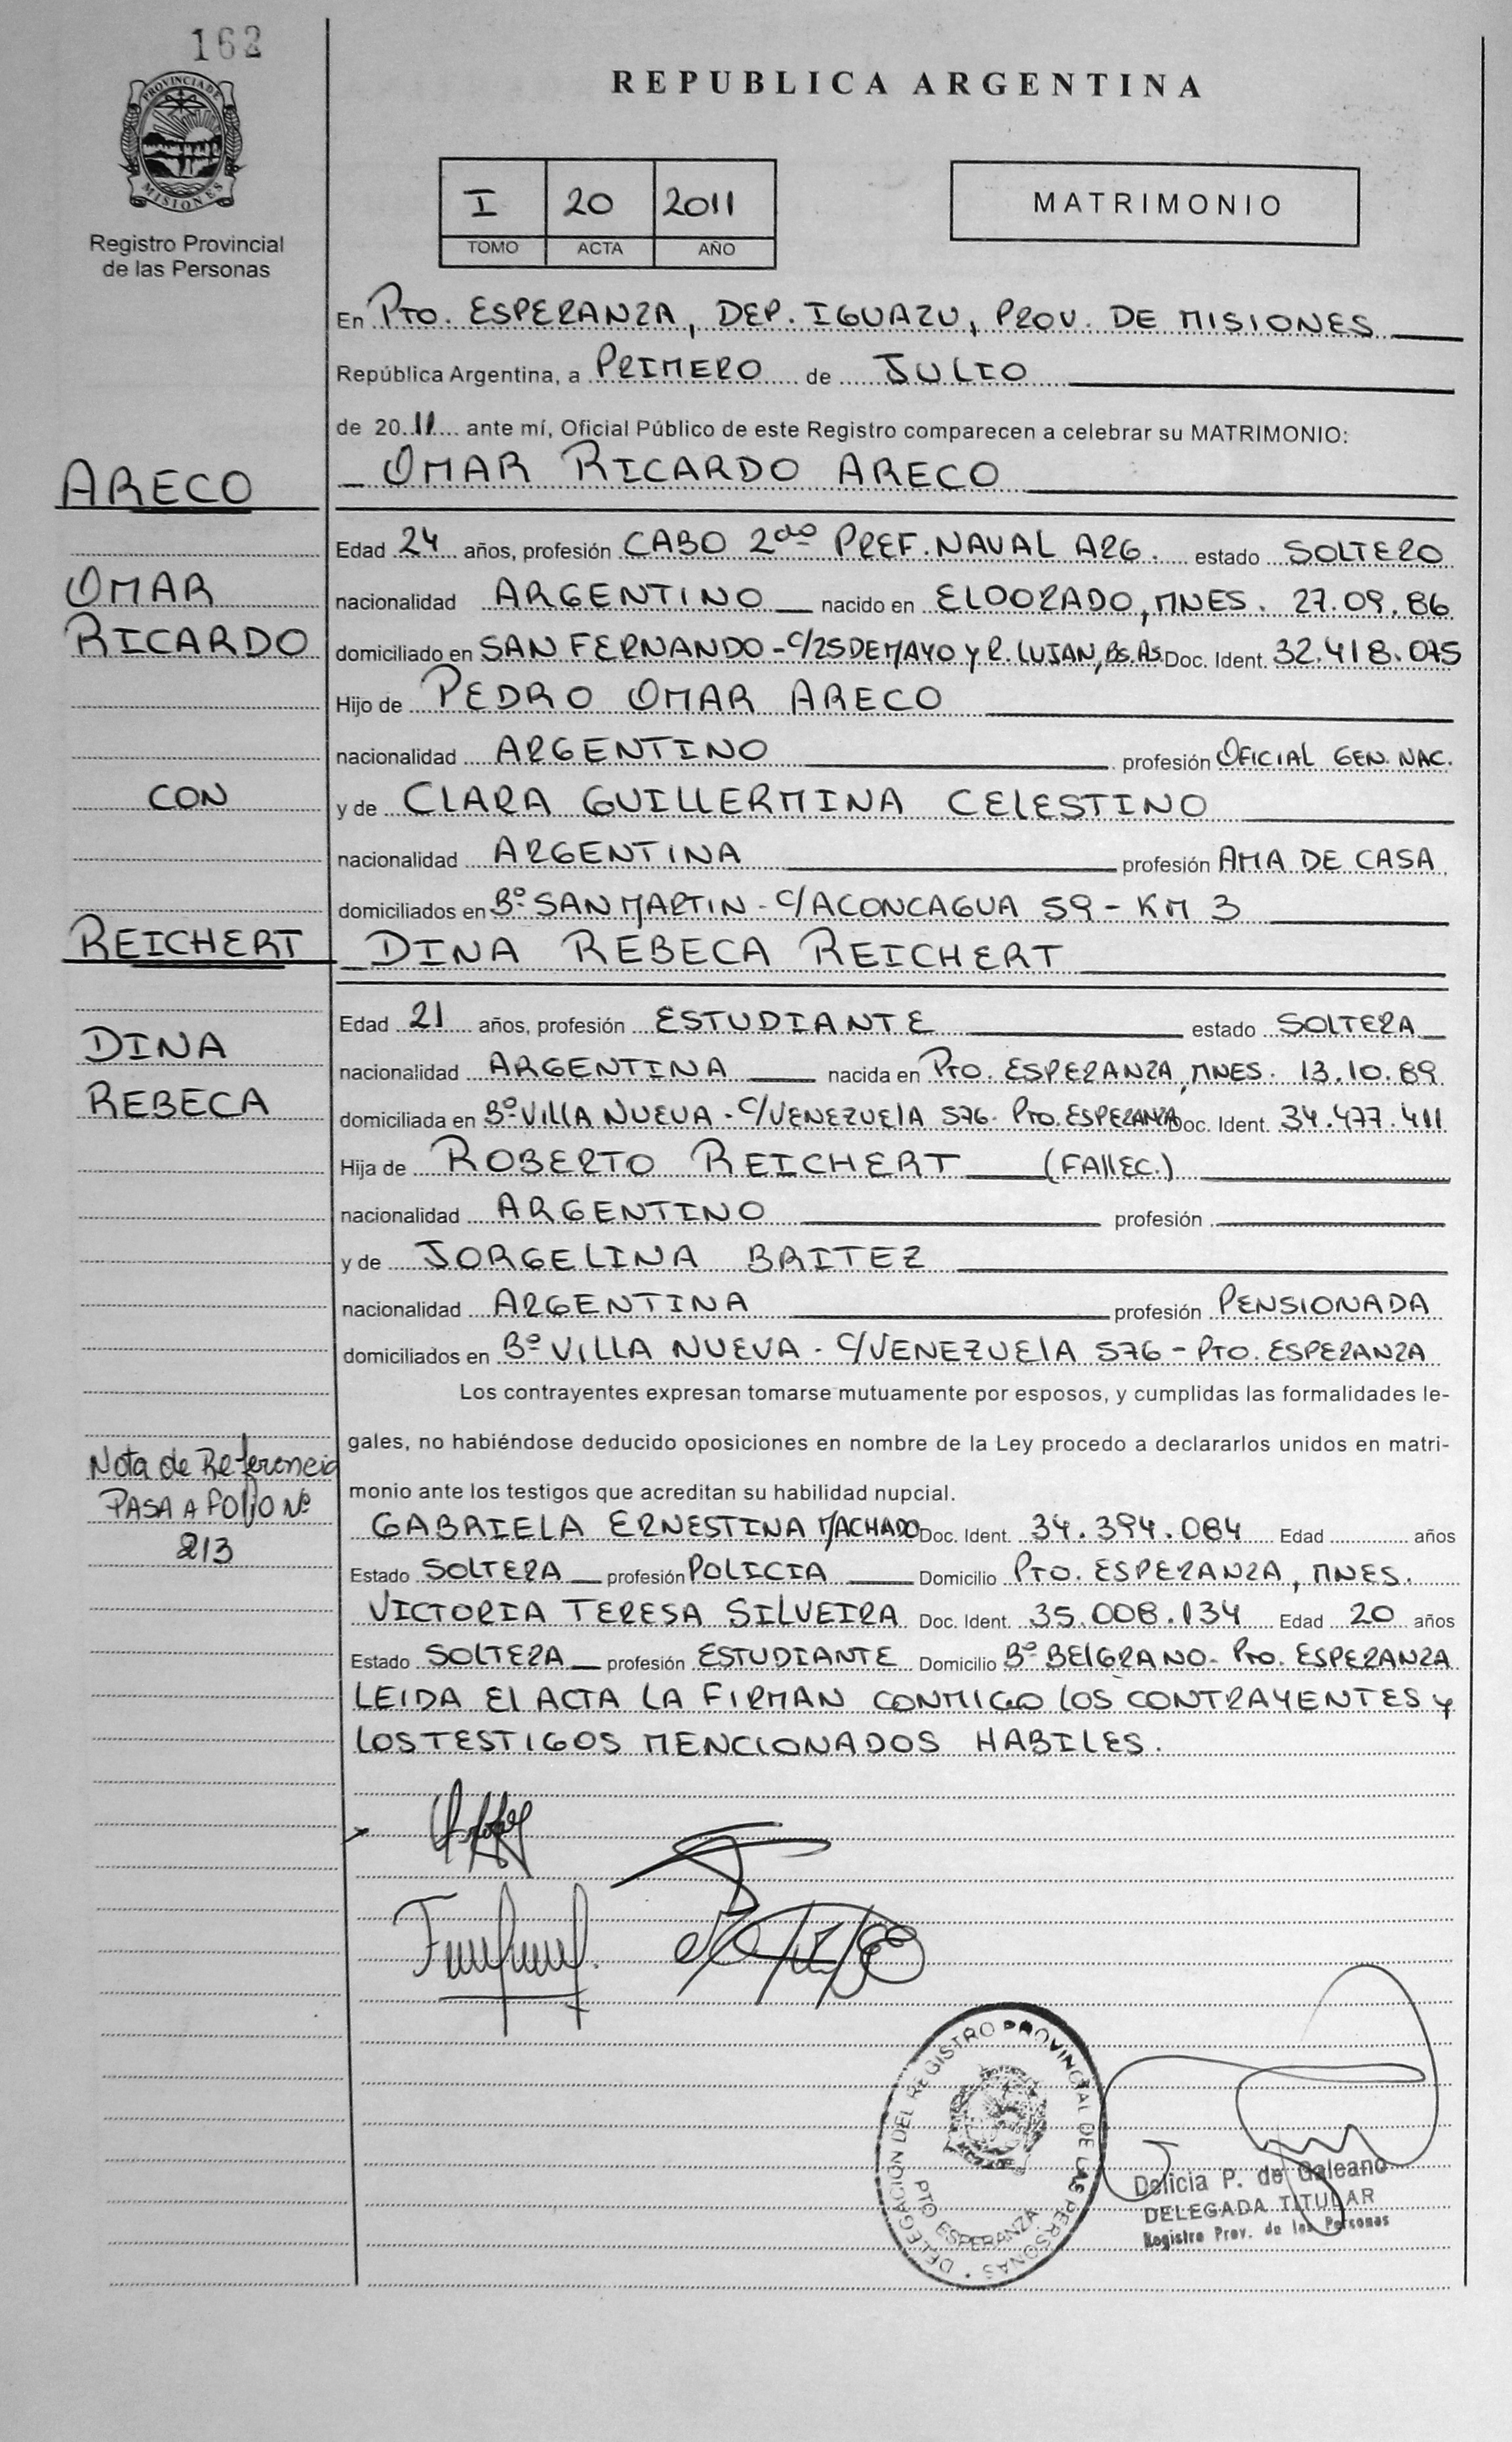 162
PROVINCIA DE
MISIONES
Registro Provincial
de las Personas
REPUBLICA ARGENTINA
I 20 2011
TOMO ACTA AÑO
MATRIMONIO
En PTO. ESPERANZA, DEP. IGUAZU, PROV. DE MISIONES
República Argentina, a PRIMERO de JULIO
de 2011 ante mí, Oficial Público de este Registro comparecen a celebrar su MATRIMONIO:
ARECO OMAR RICARDO ARECO
Edad 24 años, profesión CABO 2do PREF. NAVAL ARG. estado SOLTERO
OMAR nacionalidad ARGENTINO nacido en ELDORADO, MNES. 27.09.86
RICARDO domiciliado en SAN FERNANDO - C/25 DE MAYO Y R. LUJAN, BS. AS. Doc. Ident. 32.418.075
Hijo de PEDRO OMAR ARECO
nacionalidad ARGENTINO profesión OFICIAL GEN. NAC.
CON y de CLARA GUILLERMINA CELESTINO
nacionalidad ARGENTINA profesión AMA DE CASA
domiciliados en Bº SAN MARTIN - C/ACONCAGUA 59 - KM 3
REICHERT DINA REBECA REICHERT
Edad 21 años, profesión ESTUDIANTE estado SOLTERA
DINA nacionalidad ARGENTINA nacida en PTO. ESPERANZA, MNES. 13.10.89
REBECA domiciliada en Bº VILLA NUEVA - C/VENEZUELA 576 - PTO. ESPERANZA Doc. Ident. 34.477.411
Hija de ROBERTO REICHERT (FALLEC.)
nacionalidad ARGENTINO profesión
y de JORGELINA BRITEZ
nacionalidad ARGENTINA profesión PENSIONADA
domiciliados en Bº VILLA NUEVA - C/VENEZUELA 576 - PTO. ESPERANZA
Los contrayentes expresan tomarse mutuamente por esposos, y cumplidas las formalidades le-
gales, no habiéndose deducido oposiciones en nombre de la Ley procedo a declararlos unidos en matri-
Nota de Referencia
monio ante los testigos que acreditan su habilidad nupcial.
PASA A FOLIO Nº
GABRIELA ERNESTINA MACHADO Doc. Ident. 34.394.084 Edad años
213
Estado SOLTERA profesión POLICIA Domicilio PTO. ESPERANZA, MNES.
VICTORIA TERESA SILVEIRA Doc. Ident. 35.008.134 Edad 20 años
Estado SOLTERA profesión ESTUDIANTE Domicilio Bº BELGRANO - PTO. ESPERANZA
LEIDA EL ACTA LA FIRMAN CONMIGO LOS CONTRAYENTES Y
LOS TESTIGOS MENCIONADOS HABILES.
DELEGACIÓN DEL REGISTRO PROVINCIAL DE LAS PERSONAS
PTO ESPERANZA
Delicia P. de Galeano
DELEGADA TITULAR
Registro Prov. de las Personas